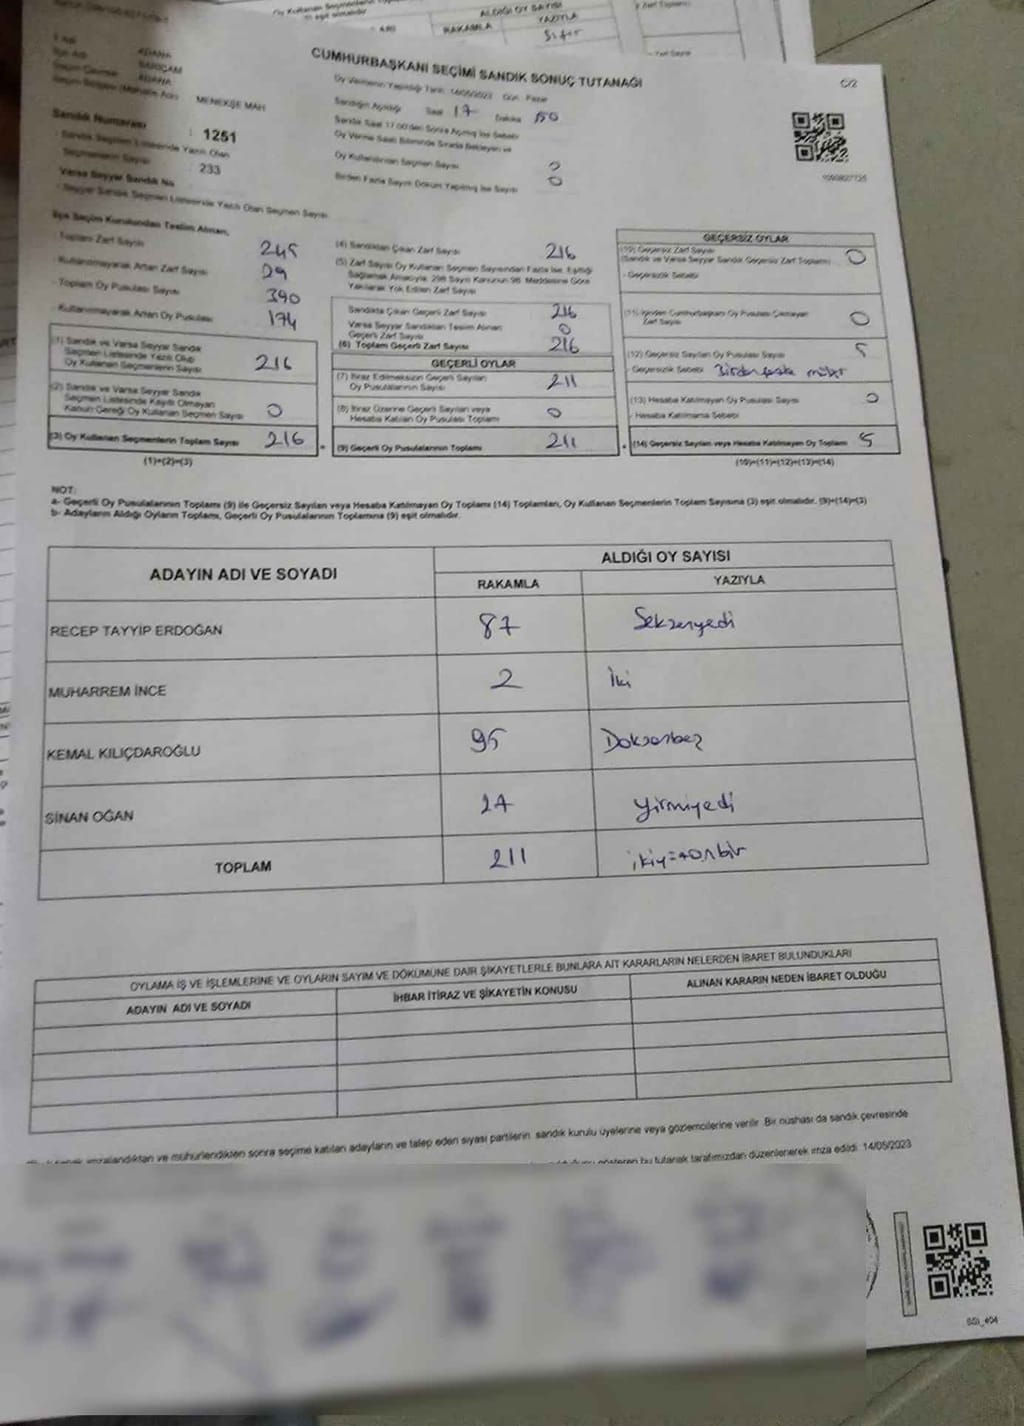 ALDIĞI OY SAYISI
RAKAMLA
YAZIYLA
Sıfır
CUMHURBAŞKANI SEÇİMİ SANDIK SONUÇ TUTANAĞI
C/2
ADANA
SARIÇAM
ADANA
MENEKŞE MAH
Oy Vermenin Yapıldığı Tarih: 14/05/2023 Gün: Pazar
Sandığın Açıldığı Saat 17 Dakika 50
Sandık Numarası : 1251
Sandık Seçmen Listesinde Yazılı Olan
Seçmenlerin Sayısı : 233
Varsa Seyyar Sandık No
Seyyar Sandık Seçmen Listesinde Yazılı Olan Seçmen Sayısı
Sandık Saat 17.00'den Sonra Açılmış İse Sebebi
Oy Verme Saati Bitiminde Sırada Bekleyen ve
Oy Kullandırılan Seçmen Sayısı 0
Birden Fazla Sayım Döküm Yapılmış İse Sayısı 0
İlçe Seçim Kurulundan Teslim Alınan,
Toplam Zarf Sayısı 245
Kullanılmayarak Artan Zarf Sayısı 29
Toplam Oy Pusulası Sayısı 390
Kullanılmayarak Artan Oy Pusulası 174
(1) Sandık ve Varsa Seyyar Sandık
Seçmen Listesinde Yazılı Olup
Oy Kullanan Seçmenlerin Sayısı 216
(2) Sandık ve Varsa Seyyar Sandık
Seçmen Listesinde Kaydı Olmayan
Kanun Gereği Oy Kullanan Seçmen Sayısı 0
(3) Oy Kullanan Seçmenlerin Toplam Sayısı 216
(1)+(2)=(3)
(4) Sandıktan Çıkan Zarf Sayısı 216
(5) Zarf Sayısı Oy Kullanan Seçmen Sayısından Fazla İse, Eşitliği
Sağlamak Amacıyla, 298 Sayılı Kanunun 98. Maddesine Göre
Yakılarak Yok Edilen Zarf Sayısı
Sandıkta Çıkan Geçerli Zarf Sayısı 216
Varsa Seyyar Sandıktan Teslim Alınan
Geçerli Zarf Sayısı 0
(6) Toplam Geçerli Zarf Sayısı 216
GEÇERLİ OYLAR
(7) İtiraz Edilmeksizin Geçerli Sayılan
Oy Pusulalarının Sayısı 211
(8) İtiraz Üzerine Geçerli Sayılan veya
Hesaba Katılan Oy Pusulası Toplamı 0
(9) Geçerli Oy Pusulalarının Toplamı 211
GEÇERSİZ OYLAR
(10) Geçersiz Zarf Sayısı
(Sandık ve Varsa Seyyar Sandık Geçersiz Zarf Toplamı) 0
- Geçersizlik Sebebi
(11) İçinden Cumhurbaşkanı Oy Pusulası Çıkmayan
Zarf Sayısı 0
(12) Geçersiz Sayılan Oy Pusulası Sayısı 5
- Geçersizlik Sebebi Birden fazla mühür
(13) Hesaba Katılmayan Oy Pusulası Sayısı 0
- Hesaba Katılmama Sebebi
(14) Geçersiz Sayılan veya Hesaba Katılmayan Oy Toplamı 5
(10)+(11)+(12)+(13)=(14)
NOT:
a- Geçerli Oy Pusulalarının Toplamı (9) ile Geçersiz Sayılan veya Hesaba Katılmayan Oy Toplamı (14) Toplamları, Oy Kullanan Seçmenlerin Toplam Sayısına (3) eşit olmalıdır. (9)+(14)=(3)
b- Adayların Aldığı Oyların Toplamı, Geçerli Oy Pusulalarının Toplamına (9) eşit olmalıdır.
ADAYIN ADI VE SOYADI
ALDIĞI OY SAYISI
RAKAMLA
YAZIYLA
RECEP TAYYİP ERDOĞAN 87 Seksenyedi
MUHARREM İNCE 2 İki
KEMAL KILIÇDAROĞLU 95 Doksanbeş
SİNAN OĞAN 27 yirmiyedi
TOPLAM 211 ikiyüzonbir
OYLAMA İŞ VE İŞLEMLERİNE VE OYLARIN SAYIM VE DÖKÜMÜNE DAİR ŞİKAYETLERLE BUNLARA AİT KARARLARIN NELERDEN İBARET BULUNDUKLARI
ADAYIN ADI VE SOYADI
İHBAR İTİRAZ VE ŞİKAYETİN KONUSU
ALINAN KARARIN NEDEN İBARET OLDUĞU
imzalandıktan ve mühürlendikten sonra seçime katılan adayların ve talep eden siyasi partilerin sandık kurulu üyelerine veya gözlemcilerine verilir. Bir nüshası da sandık çevresinde
gösteren bu tutanak tarafımızdan düzenlenerek imza edildi. 14/05/2023